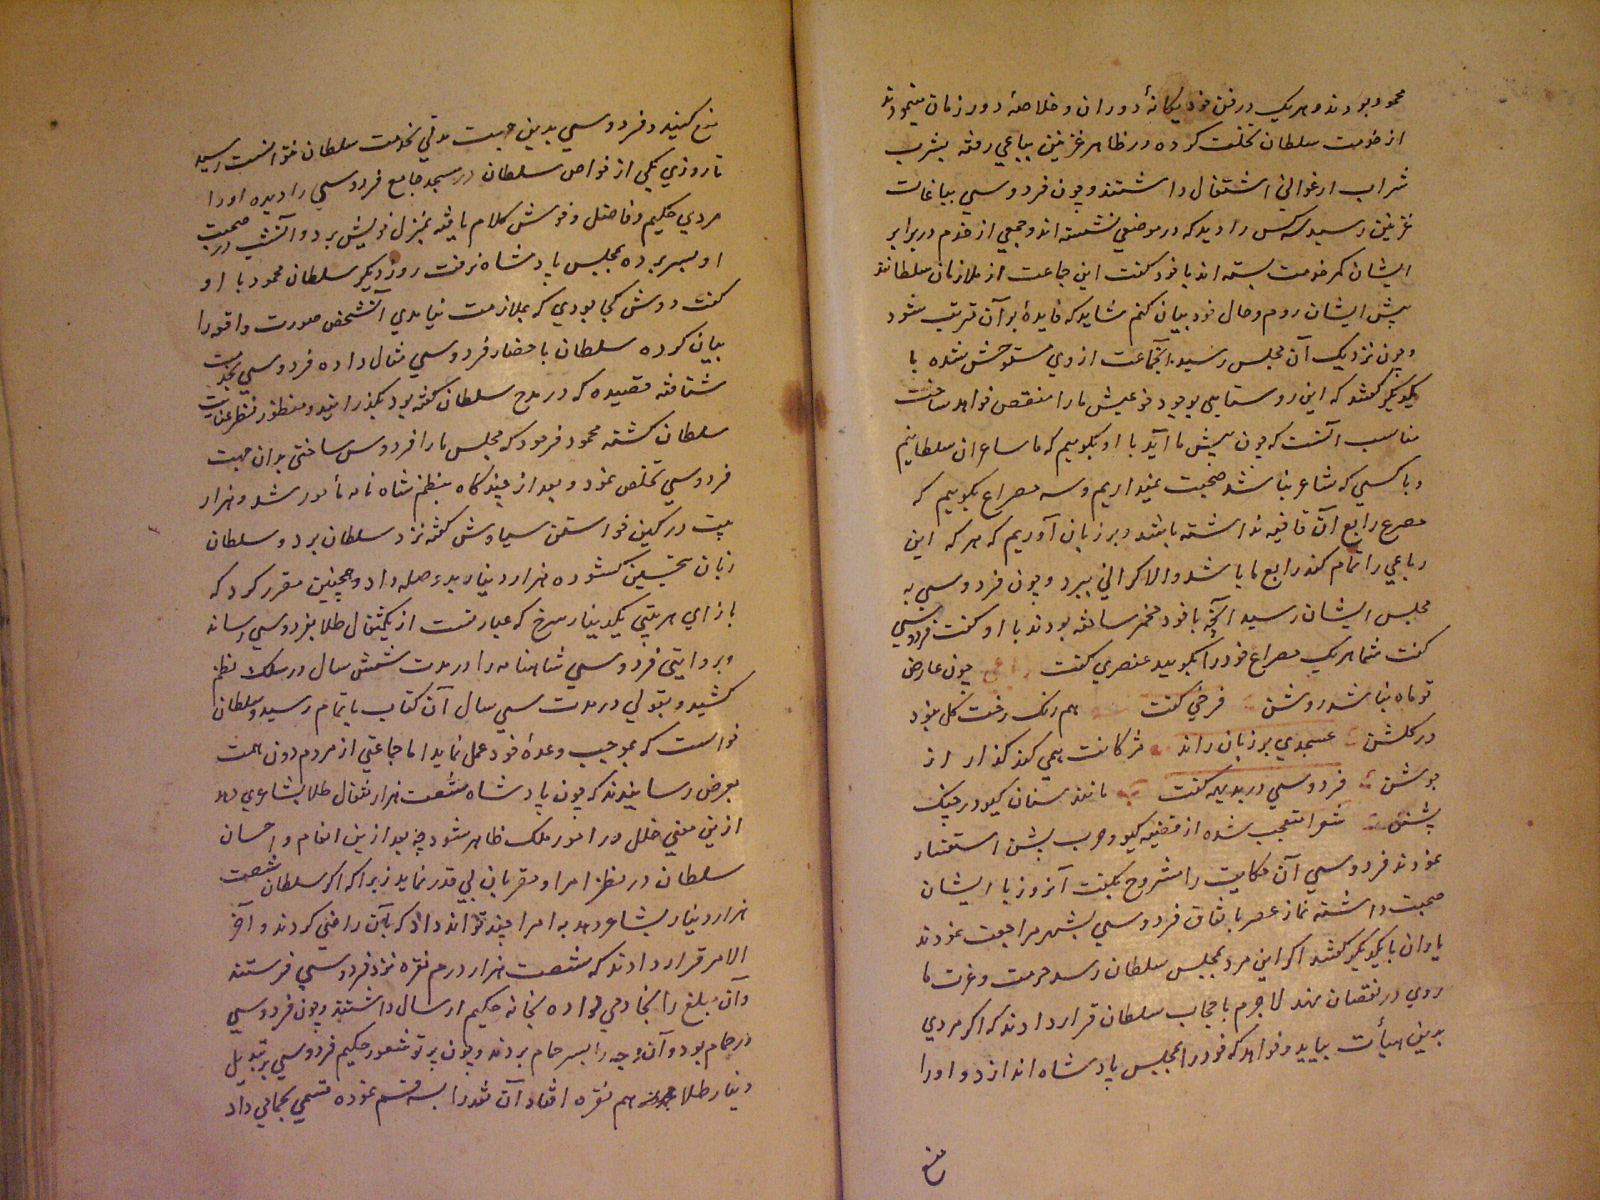 محمود بودند و هر یک در فن خود یکانهٔ دوران و خلاصهٔ دور زمان مینمودند
از خدمت سلطان تخلف کرده در ظاهر غزنین بباغی رفته بشرب
شراب ارغوانی اشتغال داشتند و چون فردوسی بباغات
غزنین رسید سه کس را دید که در موضعی نشسته اند و جمعی از خدم در برابر
ایشان کمر خدمت بسته اند با خود کفت این جماعت از ملازمان سلطانند
پیش ایشان روم و حال خود بیان کنم شاید که فایدهٔ بر آن ترتب شود
و چون نزدیک آن مجلس رسید آنجماعت از وی مستوحش شده با
یکدیکر کفتند که این روستایی بوجود خود عیش ما را منغص خواهد ساخت
مناسب آنست که چون پیش ما آید با او بکوییم که ما شاعران سلطانیم
و با کسی که شاعر نباشد صحبت نمیداریم و سه مصراع بکوییم که
مصرع رابع آن قافیه نداشته باشد و بر زبان آوریم که هر که این
رباعی را تمام کند رابع ما باشد والا کرانی ببرد و چون فردوسی به
مجلس ایشان رسید آنچه با خود مخمر ساخته بودند با او کفتند فردوسی
کفت شما هر یک مصراع خود را بکویید عنصری کفت چون عارض
تو ماه نباشد روشن فرخی کفت هم رنک رخت کل نبود
در کلشن عسجدی بر زبان راند مژکانت همی کند کذار از
جوشن فردوسی در بدیهه کفت مانند سنان کیو در جنک
پشن شعرا متعجب شده از قضیه کیو و حرب پشن استفسار
نمودند فردوسی آن حکایت را مشروح بکفت آنروز با ایشان
صحبت داشته نماز عصر باتفاق فردوسی بشهر مراجعت نمودند
یاران با یکدیکر کفتند اکر این مرد بمجلس سلطان رسد حرمت و عزت ما
روی در نقصان نهد لاجرم با حجاب سلطان قرار دادند که اکر مردی
بدین هیأت بیاید و خواهد که خود را بمجلس پادشاه اندازد و او را
منع
منع کنید و فردوسی بدین جهت مدتی بخدمت سلطان نتوانست رسید
تا روزی یکی از خواص سلطان در مسجد جامع فردوسی را دیده او را
مردی حکیم و فاضل و خوش کلام یافته بمنزل خویش برد و آنشب در صحبت
او بسر برده بمجلس پادشاه نرفت روز دیکر سلطان محمود با او
کفت دوش کجا بودی که بملازمت نیامدی آنشخص صورت واقعه را
بیان کرده سلطان باحضار فردوسی مثال داده فردوسی بخدمت
شتافته قصیده که در مدح سلطان کفته بود بکذرانید و منظور نظر عنایت
سلطان کشته محمود فرمود که مجلس ما را فردوس ساختی بدان جهت
فردوسی تخلص نمود و بعد از چند کاه بنظم شاه نامه مأمور شد و هزار
بیت در کین خواستن سیاوش کفته نزد سلطان برد و سلطان
زبان بتحسین کشوده هزار دینار بدو صله داد و همچنین مقرر کرد که
بازای هر بیتی یکدینار سرخ که عبارتست از یکمثقال طلا بفردوسی رساند
و بروایتی فردوسی شاهنامه را در مدت شش سال در سلک نظم
کشید و بقولی در مدت سی سال آن کتاب باتمام رسید و سلطان
خواست که بموجب وعدهٔ خود عمل نماید اما جماعتی از مردم دون همت
بعرض رسانیدند که چون پادشاه شصت هزار مثقال طلا بشاعری دهد
ازین معنی خلل در امور ملک ظاهر شود چه بعد ازین انعام و احسان
سلطان در نظر امرا و مقربان بی قدر نماید زیرا که اکر سلطان شصت
هزار دینار بشاعر دهد به امرا چند تواند داد که بآن راضی کردند و آخر
الامر قرار دادند که شصت هزار درم نقره نزد فردوسی فرستند
و آن مبلغ را بخادمی داده بخانه حکیم ارسال داشتند و چون فردوسی
در حمام بود و آن وجه را بسر حمام بردند و چون پرتو شعور حکیم فردوسی بر تبدیل
دینار طلا بدرهم نقره افتاد آن نقد را بسه قسم نموده قسمی بحمامی داد